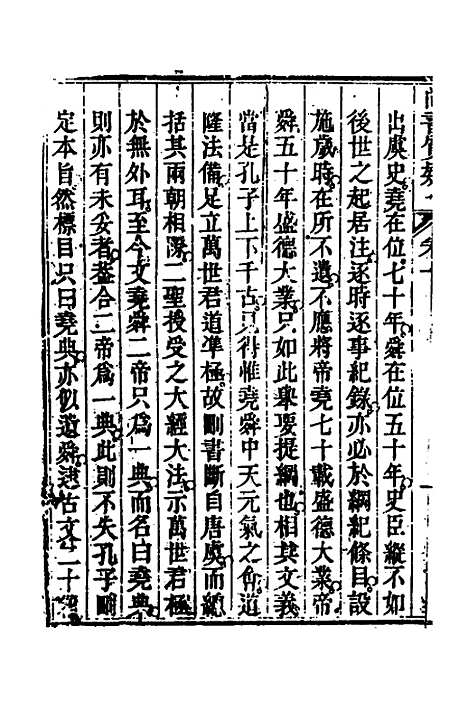 出虞史堯在位七十年舜在位五十年史臣縱不如
後世之起居注逐時逐事紀錄亦必於綱紀條目設
施歲時在所不遺不應將帝堯七十載盛德大業帝
舜五十年盛德大業只如此舉要提綱也相其文義
當是孔子上下千古只得惟堯舜中天元氣之會道
隆法備足立萬世君道準極故刪書斷自唐虞而總
括其兩朝相際二聖授受之大經大法示萬世君極
於無外耳至今文堯舜二帝只為一典而名曰堯典
則亦有未妥者葢合二帝為一典此則不失孔子刪
定本自然標目只曰堯典亦似遺舜逮古文二十